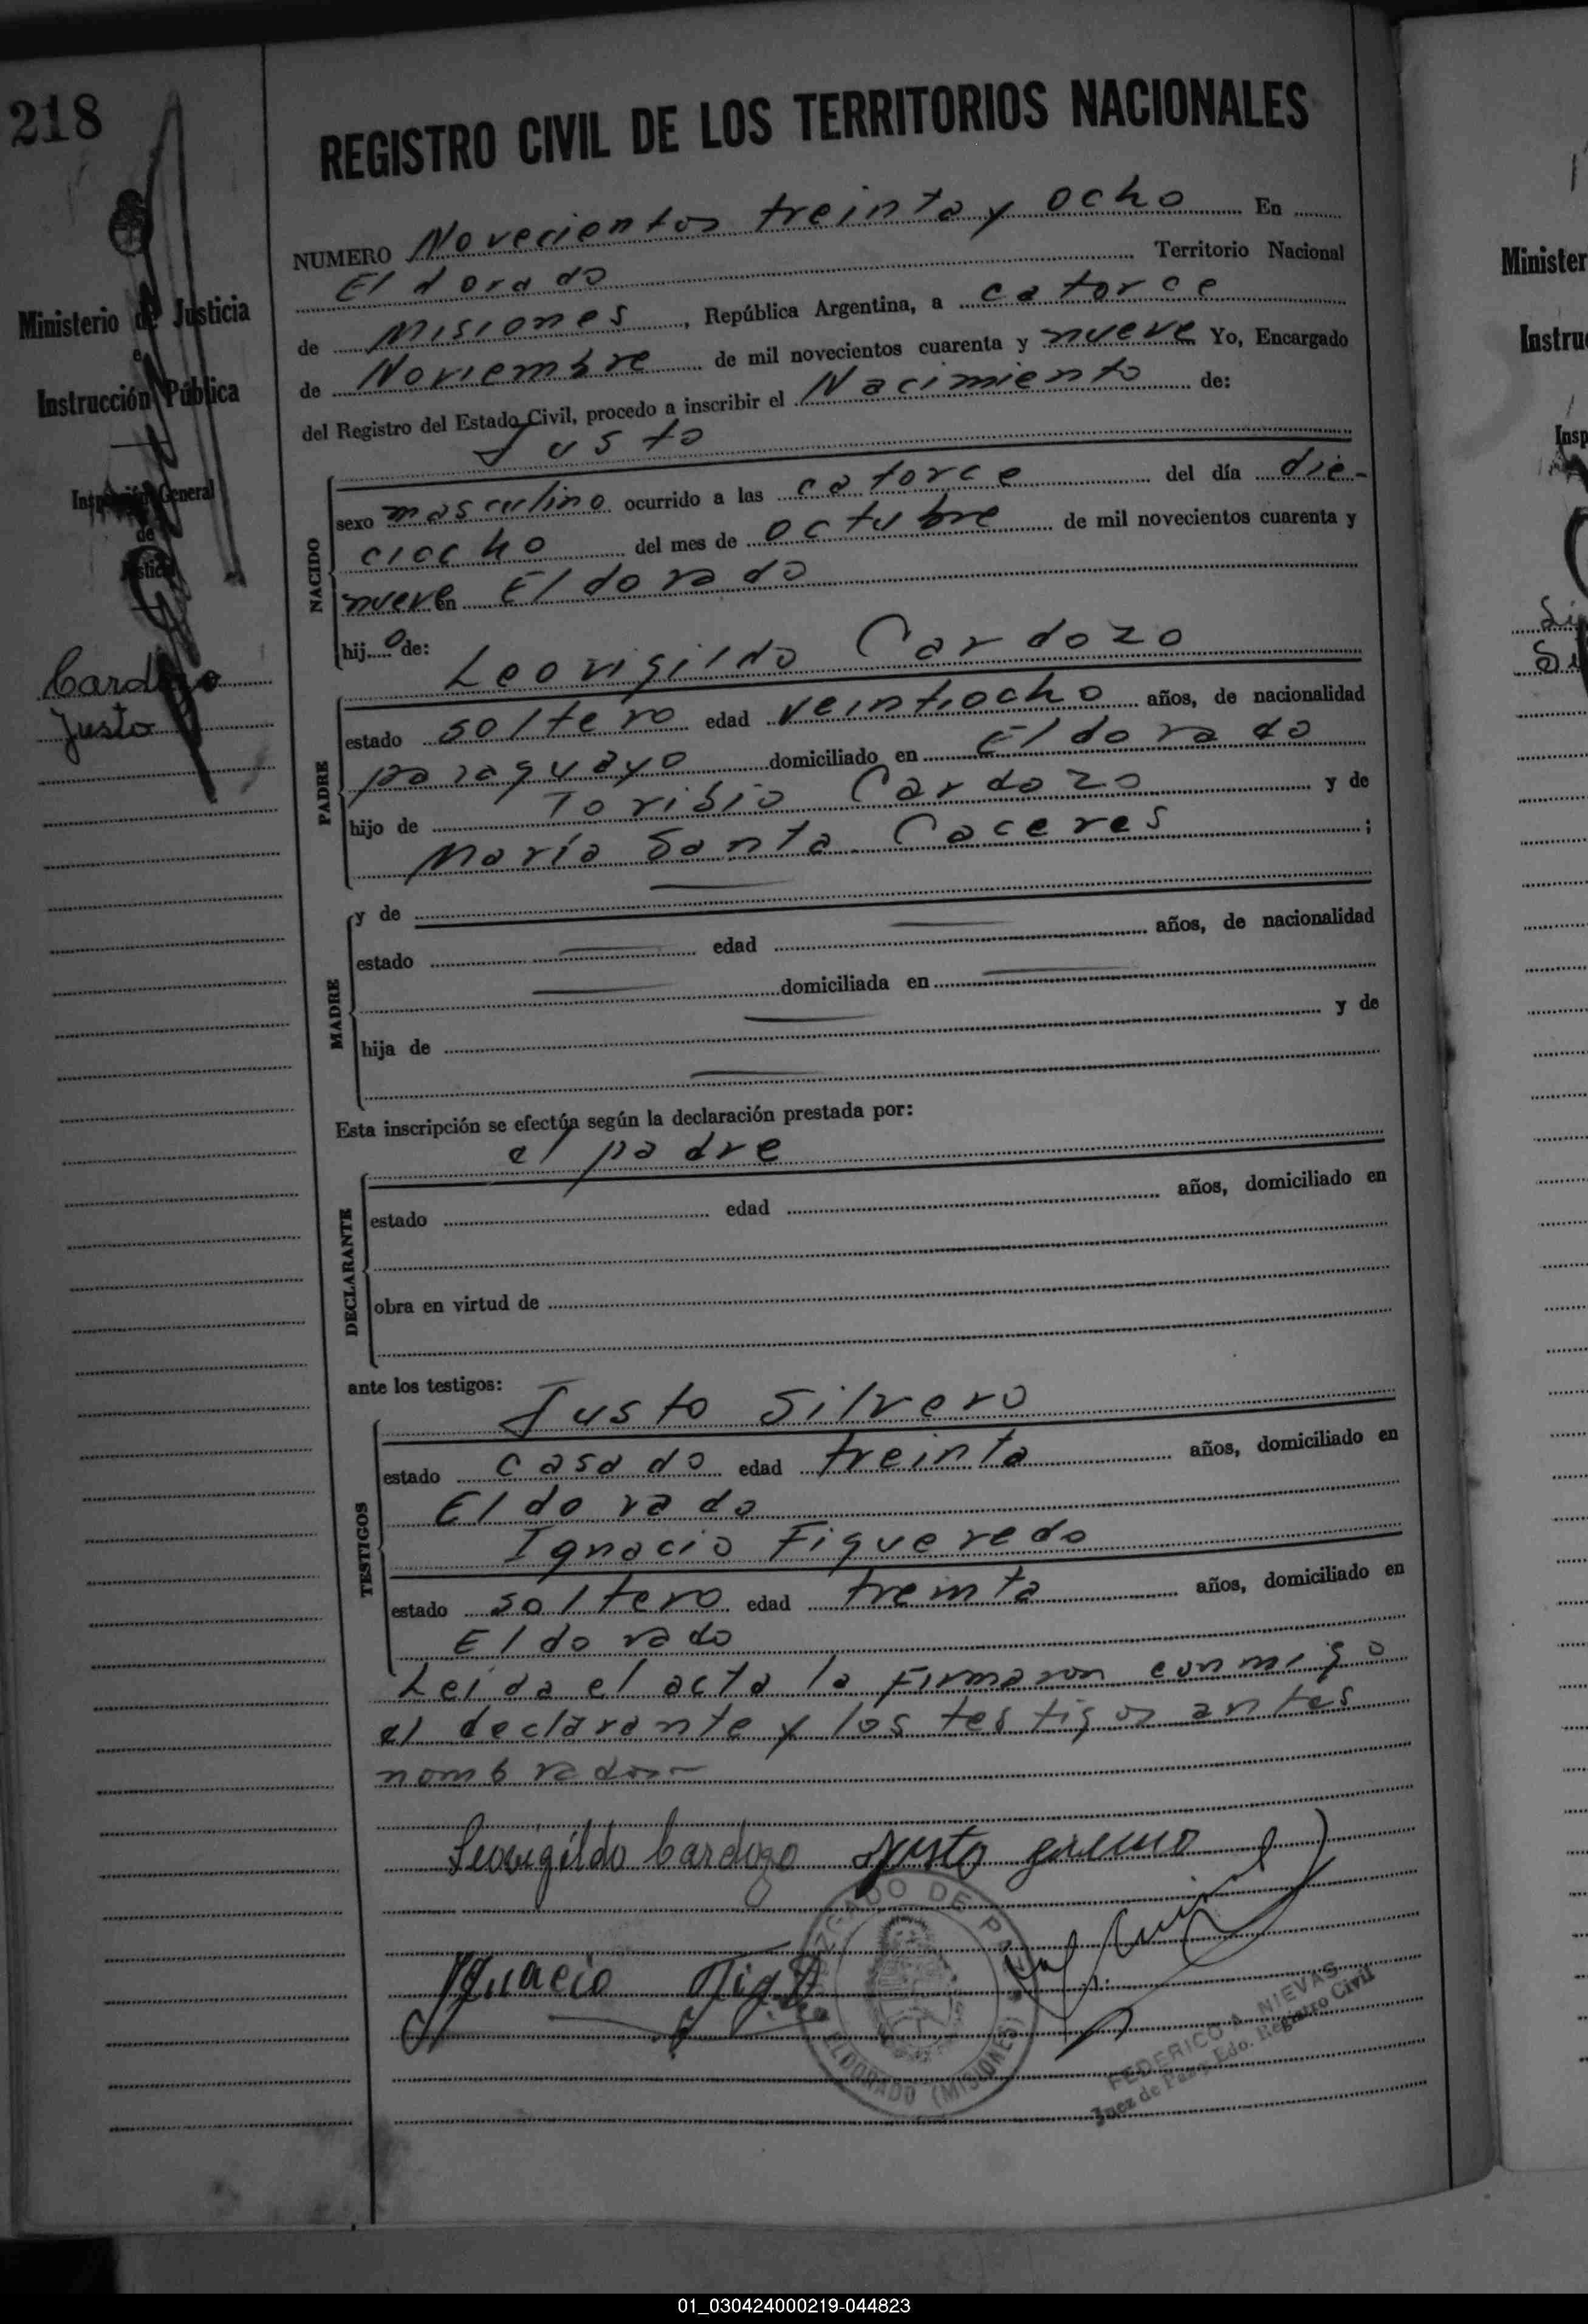 218
REGISTRO CIVIL DE LOS TERRITORIOS NACIONALES
NUMERO Novecientos treinta y ocho En
Eldorado Territorio Nacional
de Misiones, República Argentina, a catorce
de Noviembre de mil novecientos cuarenta y nueve Yo, Encargado
del Registro del Estado Civil, procedo a inscribir el Nacimiento de:
Justo
Ministerio de Justicia
e
Instrucción Pública
Inspección General
de
Justicia
Cardozo
Justo
NACIDO
sexo masculino ocurrido a las catorce del día die-
ciocho del mes de octubre de mil novecientos cuarenta y
nueve en Eldorado
hijo de:
Leovigildo Cardozo
PADRE
estado soltero edad veintiocho años, de nacionalidad
paraguayo domiciliado en Eldorado
hijo de Toribio Cardozo y de
María Santa Caceres;
MADRE
y de
estado edad años, de nacionalidad
domiciliada en
hija de y de
Esta inscripción se efectúa según la declaración prestada por:
el padre
DECLARANTE
estado edad años, domiciliado en
obra en virtud de
ante los testigos:
Justo Silvero
TESTIGOS
estado casado edad treinta años, domiciliado en
Eldorado
Ignacio Figueredo
estado soltero edad treinta años, domiciliado en
Eldorado
Leida el acta la firmaron conmigo
el declarante y los testigos antes
nombrados
Leovigildo Cardozo Justo
Ignacio
JUZGADO DE PAZ
ELDORADO (MISIONES)
FEDERICO A. NIEVAS
Juez de Paz y Edo. Registro Civil
Minister
Instru
Insp
01_030424000219-044823